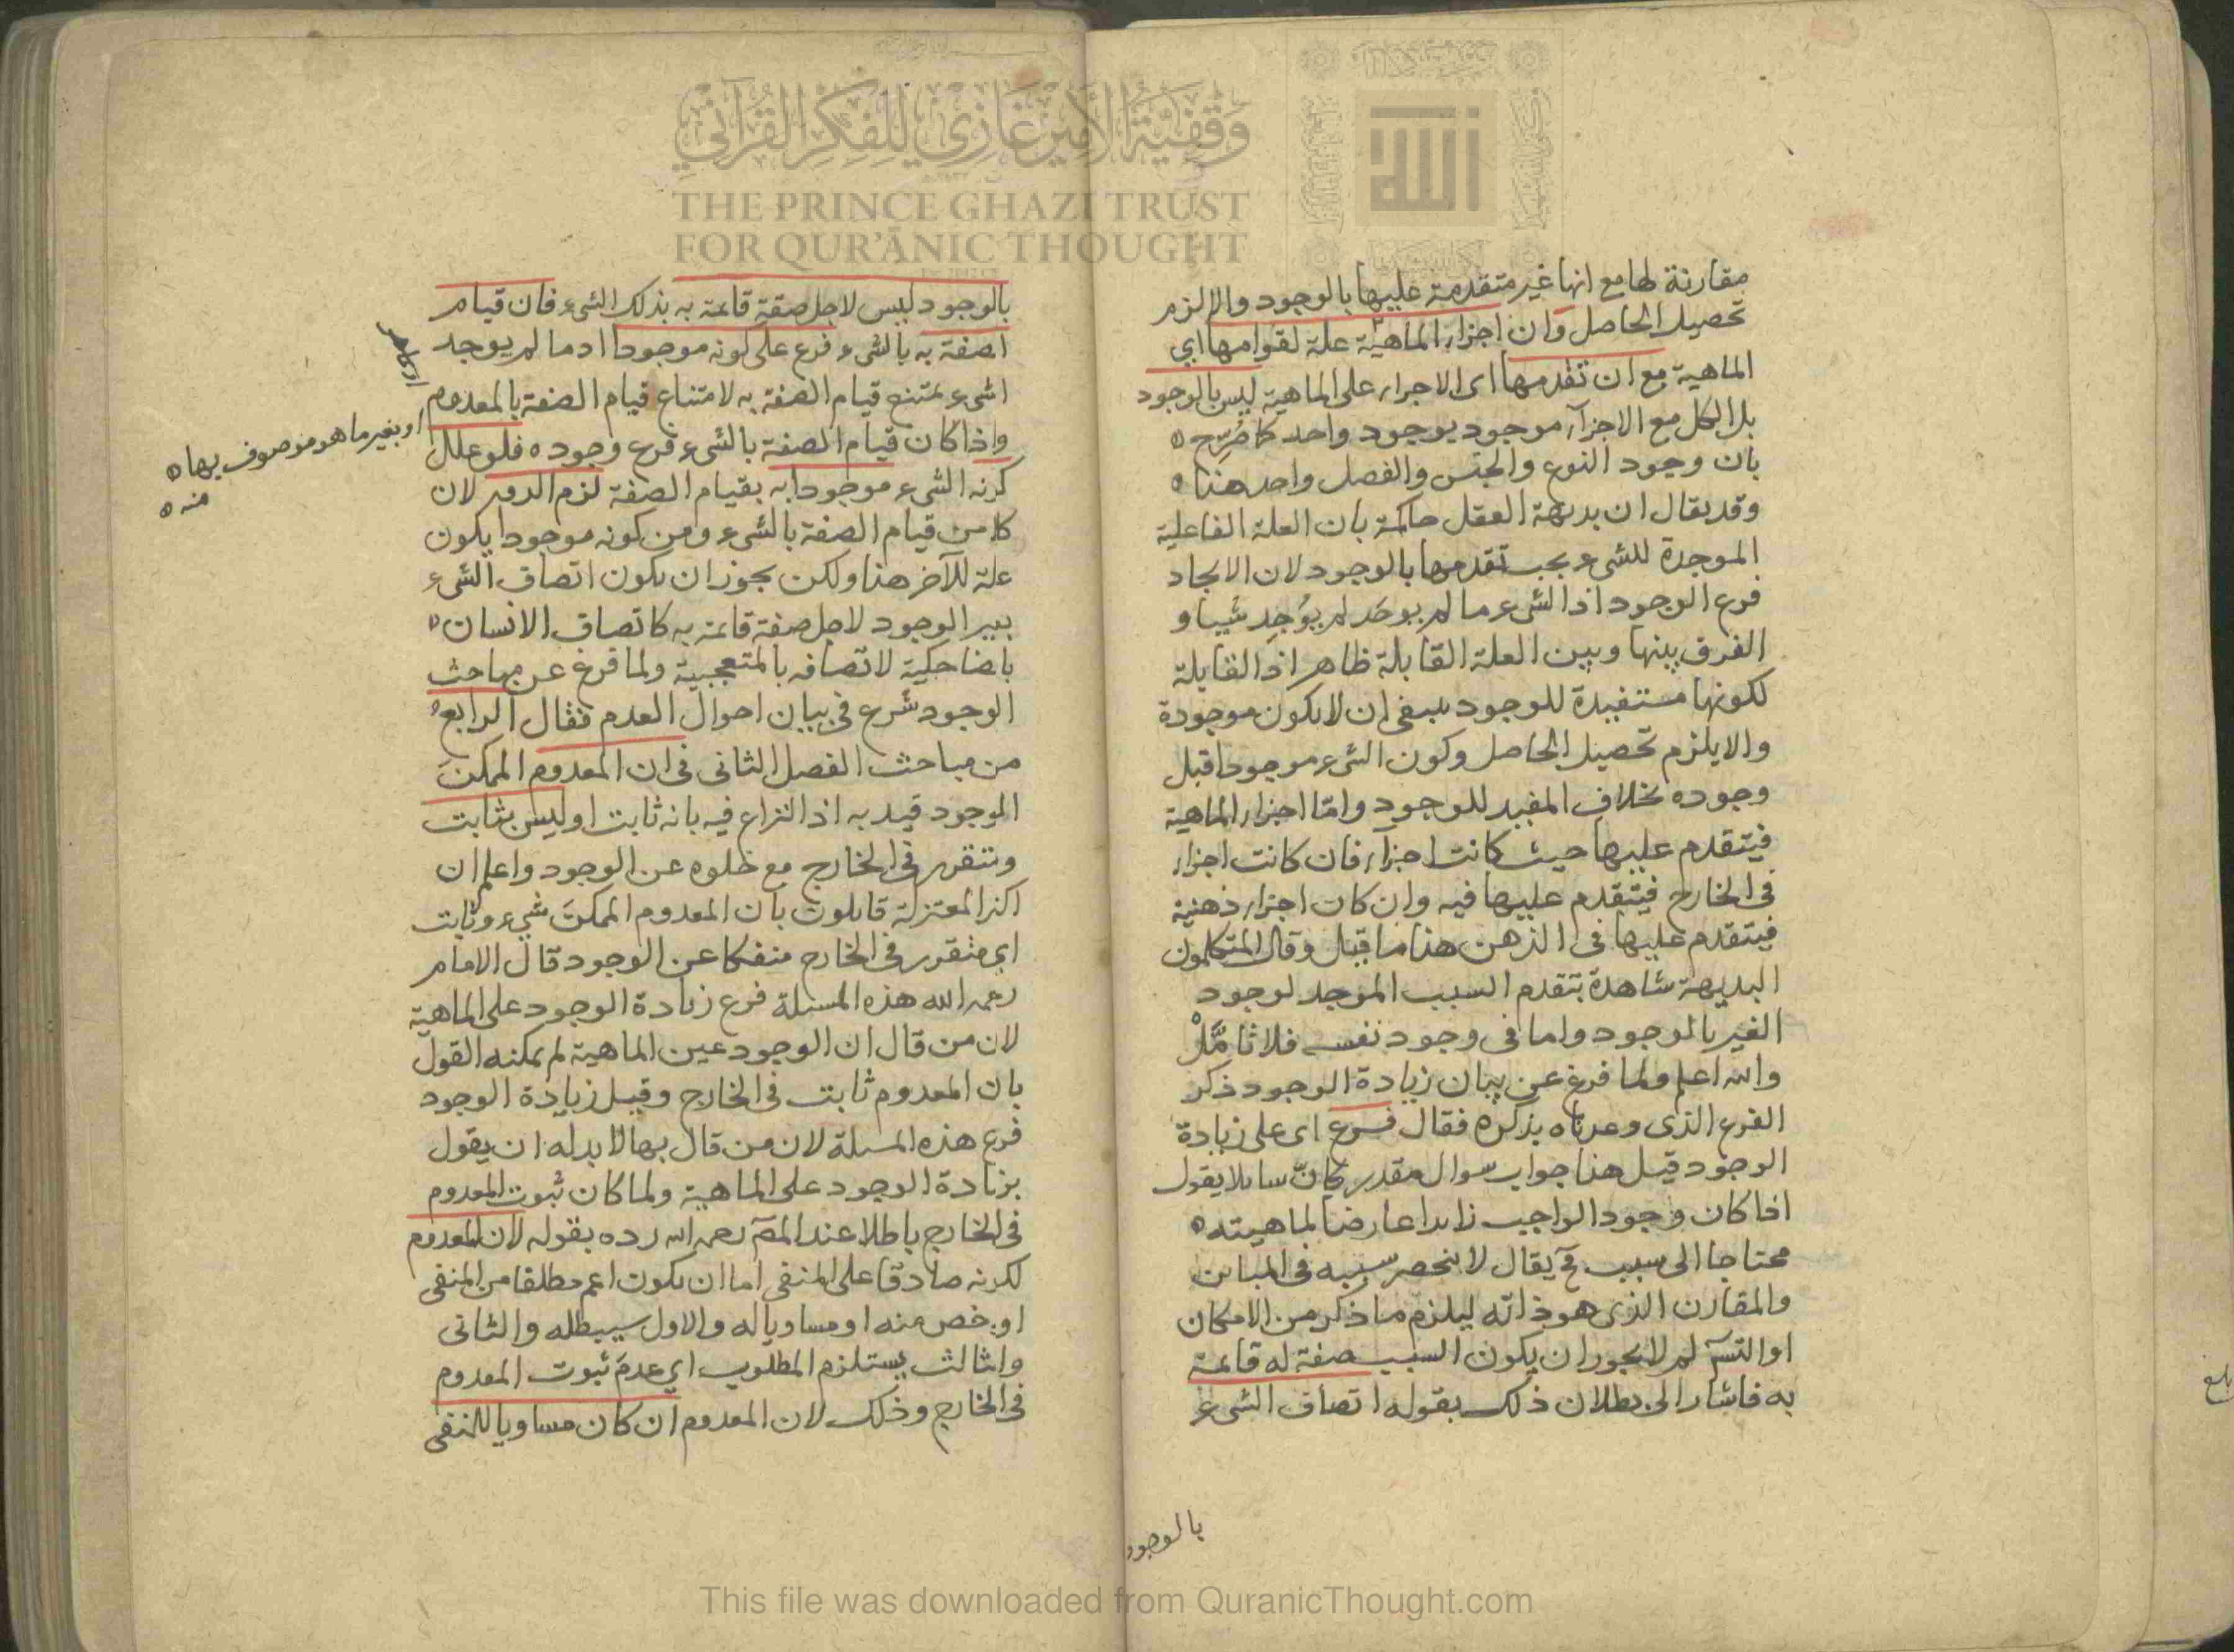 وقفية الأمير غازي للفكر القرآني
THE PRINCE GHAZI TRUST
FOR QUR'ĀNIC THOUGHT
الله
مقارنة لها مع انها غير متقدمة عليها بالوجود والا لزم
تحصيل الحاصل وان اجزاء الماهية علة لقوامها اي
الماهية مع ان تقدمها اى الاجزاء على الماهية ليس بالوجود
بل الكل مع الاجزآء موجود بوجود واحد كما صُرِّح
بان وجود النوع والجنس والفصل واحد هذا
وقد يقال ان بديهة العقل حاكمة بان العلة الفاعلية
الموجدة للشيء يجب تقدمها بالوجود لان الايجاد
فرع الوجود اذ الشيء ما لم يوجَد لم يوُجِد شيبا و
الفرق بينها وبين العلة القابلة ظاهر اذ القابلة
لكونها مستفيدة للوجود ينبغي ان لا يكون موجودة
والا يلزم تحصيل الحاصل وكون الشيء موجودا قبل
وجوده بخلاف المفيد للوجود وامّا اجزاء الماهية
فيتقدم عليها حيث كانت اجزآء فان كانت اجزاء
في الخارج فيتقدم عليها فيه وان كان اجزاء ذهنية
فيتقدم عليها في الذهن هذا ما قيل وقال المتكلمون
البديهة شاهدة بتقدم السبب الموجد لوجود
الغير بالوجود واما في وجود نفسه فلا تأمَّلْ
والله اعلم ولما فرغ عن بيان زيادة الوجود ذكر
الفرع الذى وعدناه بذكره فقال فرع اى على زيادة
الوجود قيل هذا جواب سوال مقدر كانّ سايلا يقول
اذا كان وجود الواجب زايدا عارضا لماهيته
محتاجا الى سبب فح يقال لا ينحصر سببه في المباين
والمقارن الذى هو ذاته ليلزم ما ذكر من الامكان
او التسَ لم لا يجوز ان يكون السبب صفة له قايمة
به فاشار الى بطلان ذلك بقوله اتصاف الشيء
بالوجود
بالوجود ليس لاجل صفة قائمة به بذلك الشيء فان قيام
الصفة به بالشيء فرع على كونه موجودا اذ ما لم يوجد
الشيء يمتنع قيام الصفة به لامتناع قيام الصفة بالمعدوم
او بغير ما هو موصوف بها
منه
واذا كان قيام الصفة بالشيء فرع وجوده فلو علل
كونه الشيء موجودا به بقيام الصفة لزم الدور لان
كلا من قيام الصفة بالشيء ومن كونه موجودا يكون
علة للآخر هذا ولكن يجوز ان يكون اتصاف الشيء
بغير الوجود لاجل صفة قائمة به كاتصاف الانسان
بالضاحكية لاتصافه بالمتعجبية ولما فرغ عن مباحث
الوجود شرع في بيان احوال العدم فقال الرابع
من مباحث الفصل الثاني في ان المعدوم الممكن
الموجود قيد به اذ النزاع فيه بانه ثابت او ليس بثابت
ومتقرر في الخارج مع خلوه عن الوجود واعلم ان
اكثر المعتزلة قايلون بان المعدوم الممكن شيء وثابت
اي متقرر في الخارج منفكا عن الوجود قال الامام
رحمه الله هذه المسئلة فرع زيادة الوجود على الماهية
لان من قال ان الوجود عين الماهية لم يمكنه القول
بان المعدوم ثابت في الخارج وقيل زيادة الوجود
فرع هذه المسئلة لان من قال بها لا بد له ان يقول
بزيادة الوجود على الماهية ولما كان ثبوت المعدوم
في الخارج باطلا عند المصَ رحمه الله رده بقوله لان المعدوم
لكونه صادقا على المنفي اما ان يكون اعم مطلقا من المنفي
او اخص منه او مساويا له والاول سيبطله والثاني
والثالث يستلزم المطلوب اي عدم ثبوت المعدوم
في الخارج وذلك لان المعدوم ان كان مساويا للمنفي
This file was downloaded from QuranicThought.com